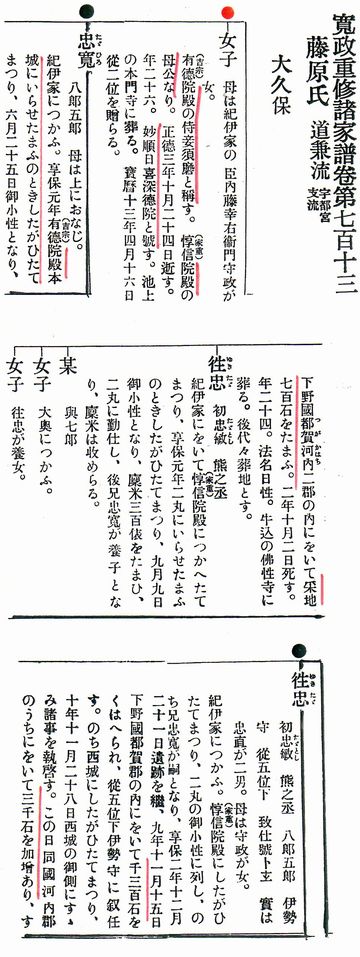 寛政重修諸家譜卷第七百十三
藤原氏 道兼流 宇都宮支流
大久保
女子 母は紀伊家の臣内藤幸右衞門守政が
女。
有德院殿の侍妾須磨と稱す。惇信院殿の
(吉宗)
(家重)
母公なり。正德三年十月二十四日逝す。
年二十六。妙順日喜深德院と號す。池上
の本門寺に葬る。寶曆十三年四月十六日
從二位を贈らる。
忠寬
たゞひろ
八郎五郎 母は上におなじ。
紀伊家につかふ。享保元年有德院殿本
(吉宗)
城にいらせたまふのときしたがひたて
まつり、六月二十五日御小性となり、
下野國都賀河内二郡の内にをいて采地
つが
かはち
七百石をたまふ。二年十月二日死す。
年二十四。法名日性。牛込の佛性寺に
葬る。後代々葬地とす。
往忠
ゆきたゞ
初忠敏 熊之丞
たゞとし
紀伊家にをいて惇信院殿につかへたて
(家重)
まつり、享保元年二丸にいらせたまふ
のときしたがひたてまつり、九月九日
御小性となり、廩米三百俵をたまひ、
二丸に勤仕し、後兄忠寬が養子とな
り、廩米は收めらる。
某 與七郎
女子 大奧につかふ。
女子 往忠が養女。
往忠
ゆきたゞ
初忠敏 熊之丞 八郎五郎 伊勢
たゞとし
守 從五位下 致仕號卜玄 實は
忠直が二男。母は守政が女。
紀伊家につかふ。惇信院殿にしたがひ
(家重)
たてまつり、二丸の御小性に列し、の
ち兄忠寬が嗣となり、享保二年十二月
二十一日遺跡を繼、九年十一月十五日
下野國都賀郡の内にをいて千三百石を
くはへられ、從五位下伊勢守に敍任
す。のち西城にしたがひたてまつり、
十年十一月二十八日西城の御側にすゝ
み諸事を執啓す。この日同國河内郡
のうちにをいて三千石を加增あり、す